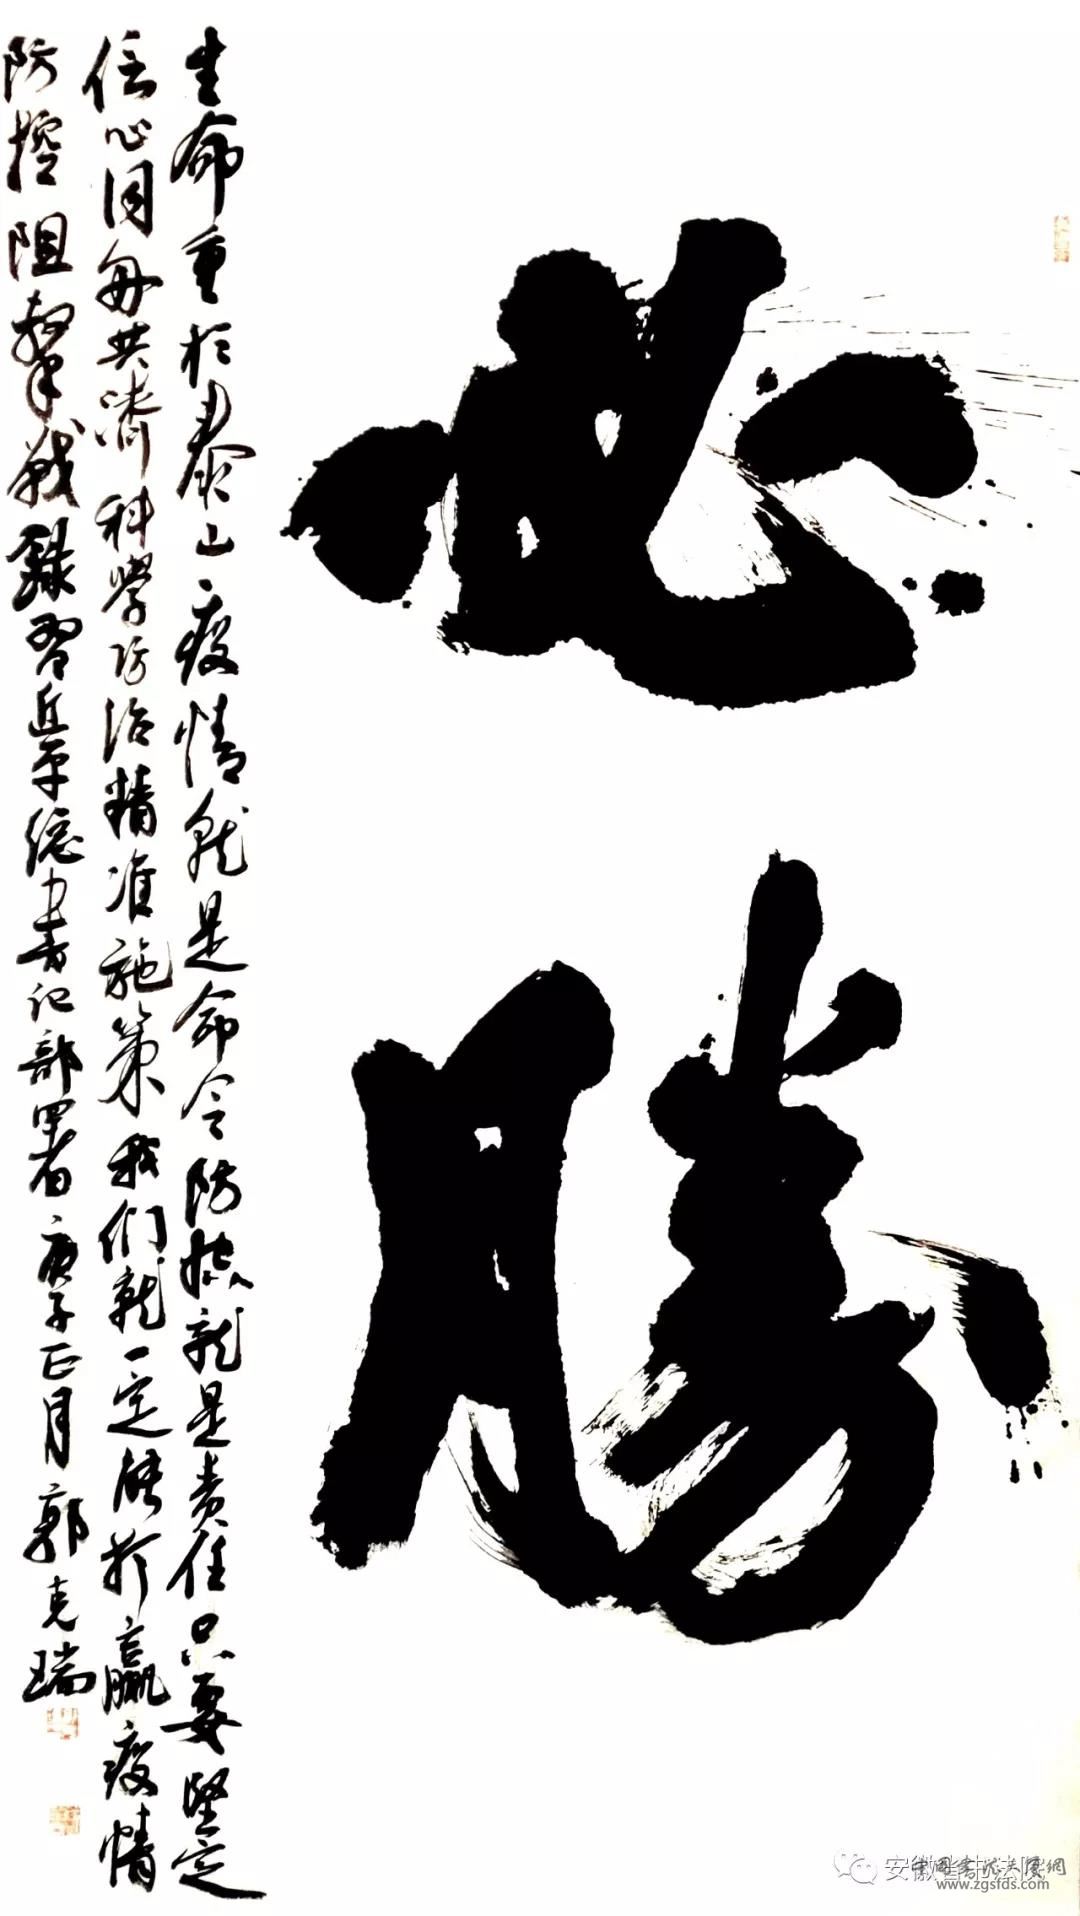 必勝
生命重於泰山疫情就是命令防控就是責任只要堅定
信心同舟共濟科學防治精准施策我们就一定能打贏疫情
防控阻擊戰錄習近平總書記部署庚子正月郭克瑞
安徽省书法院
中国书法大厦網
www.zgsfds.com